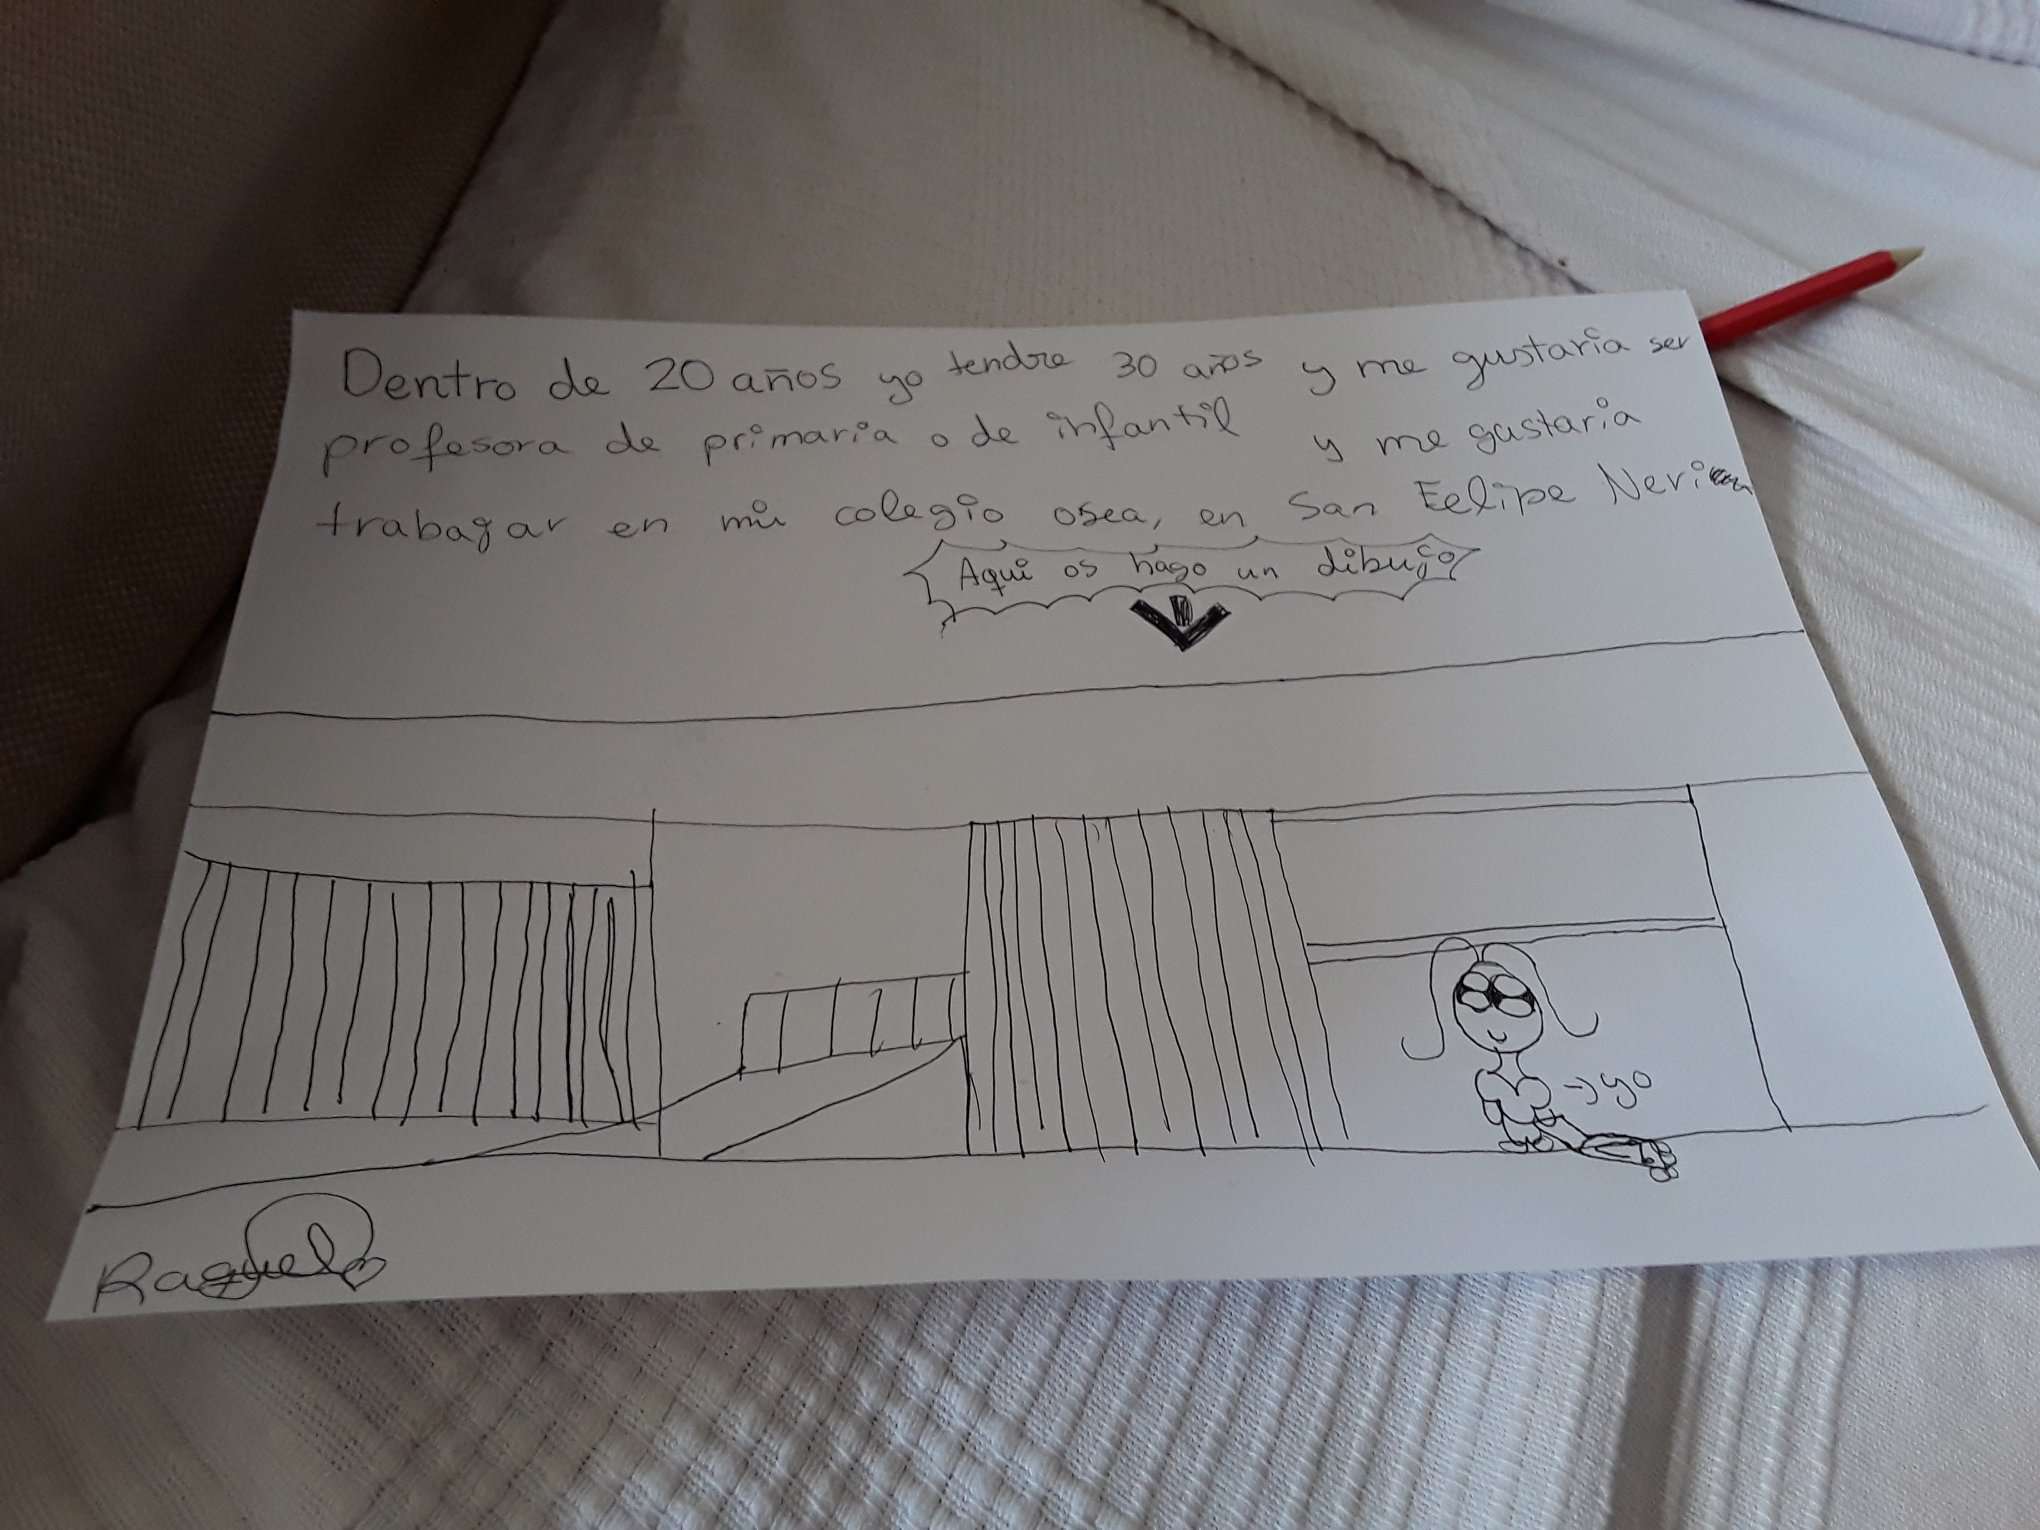 Dentro de 20 años yo tendre 30 años y me gustaria ser
profesora de primaria o de infantil y me gustaria
trabagar en mi colegio osea, en San Felipe Neri
Aqui os hago un dibujo
→ yo
Raquel